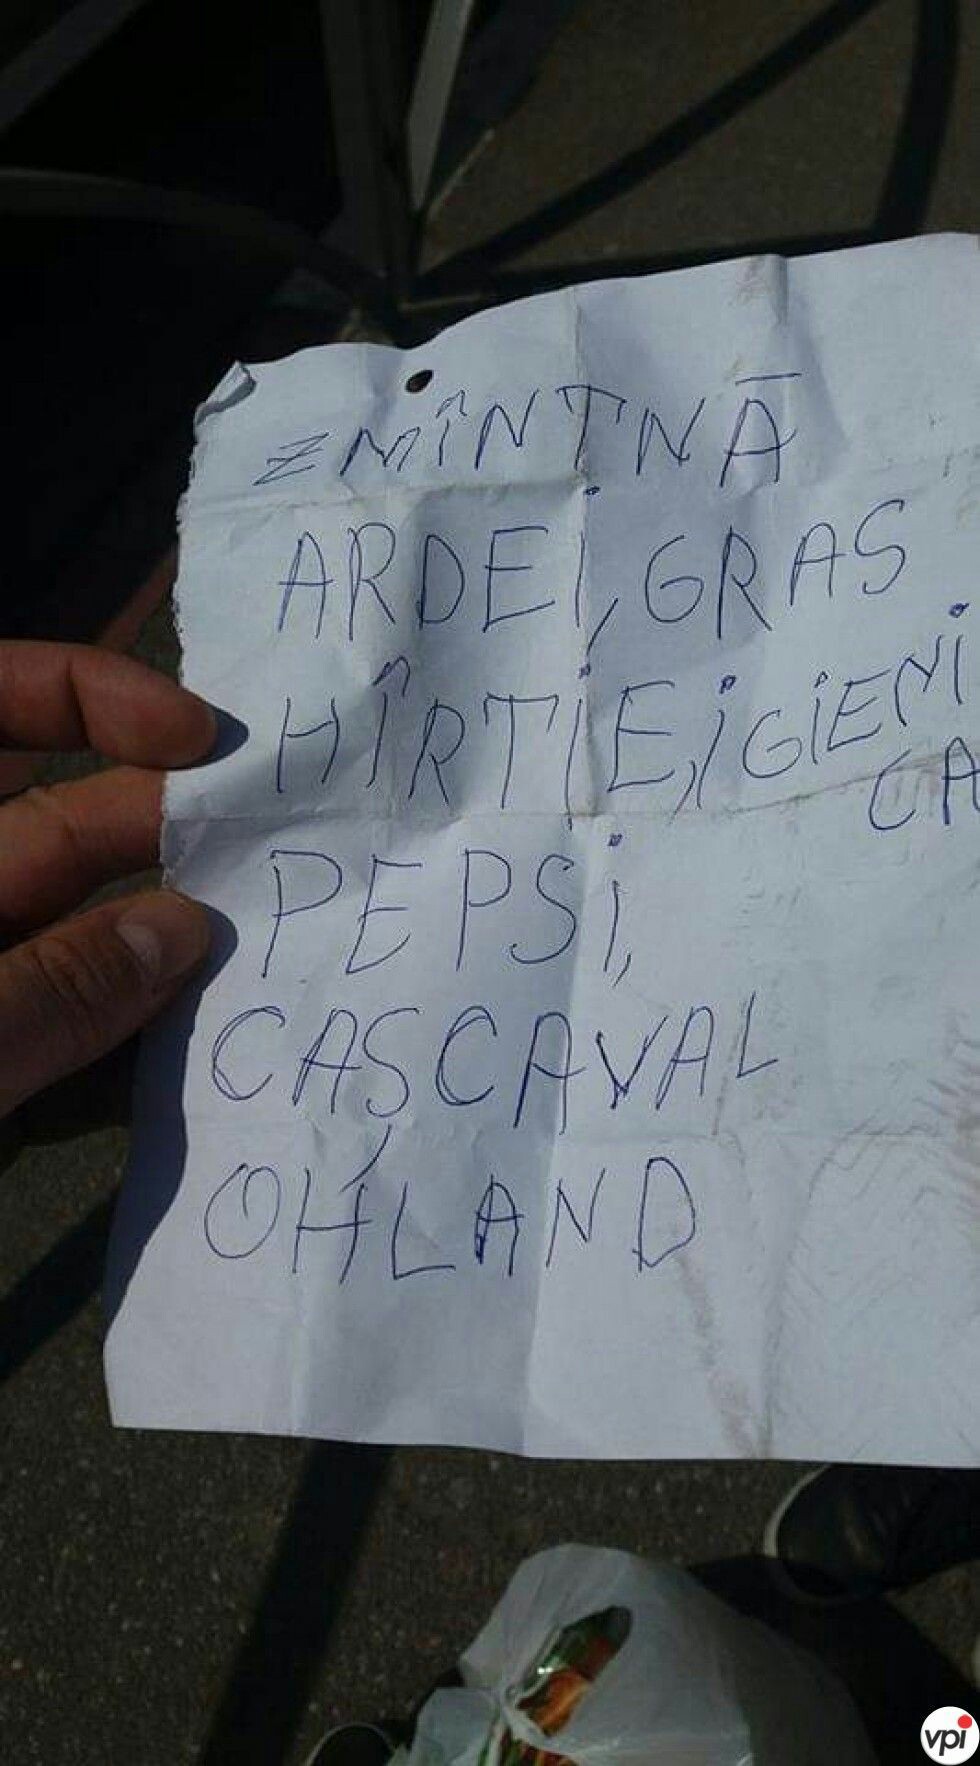 ZMÎNTNĀ
ARDEI, GRAS
HÎRTIE, IGIENI
CA
PEPSI,
CAȘCAVAL
OHLAND
vpi